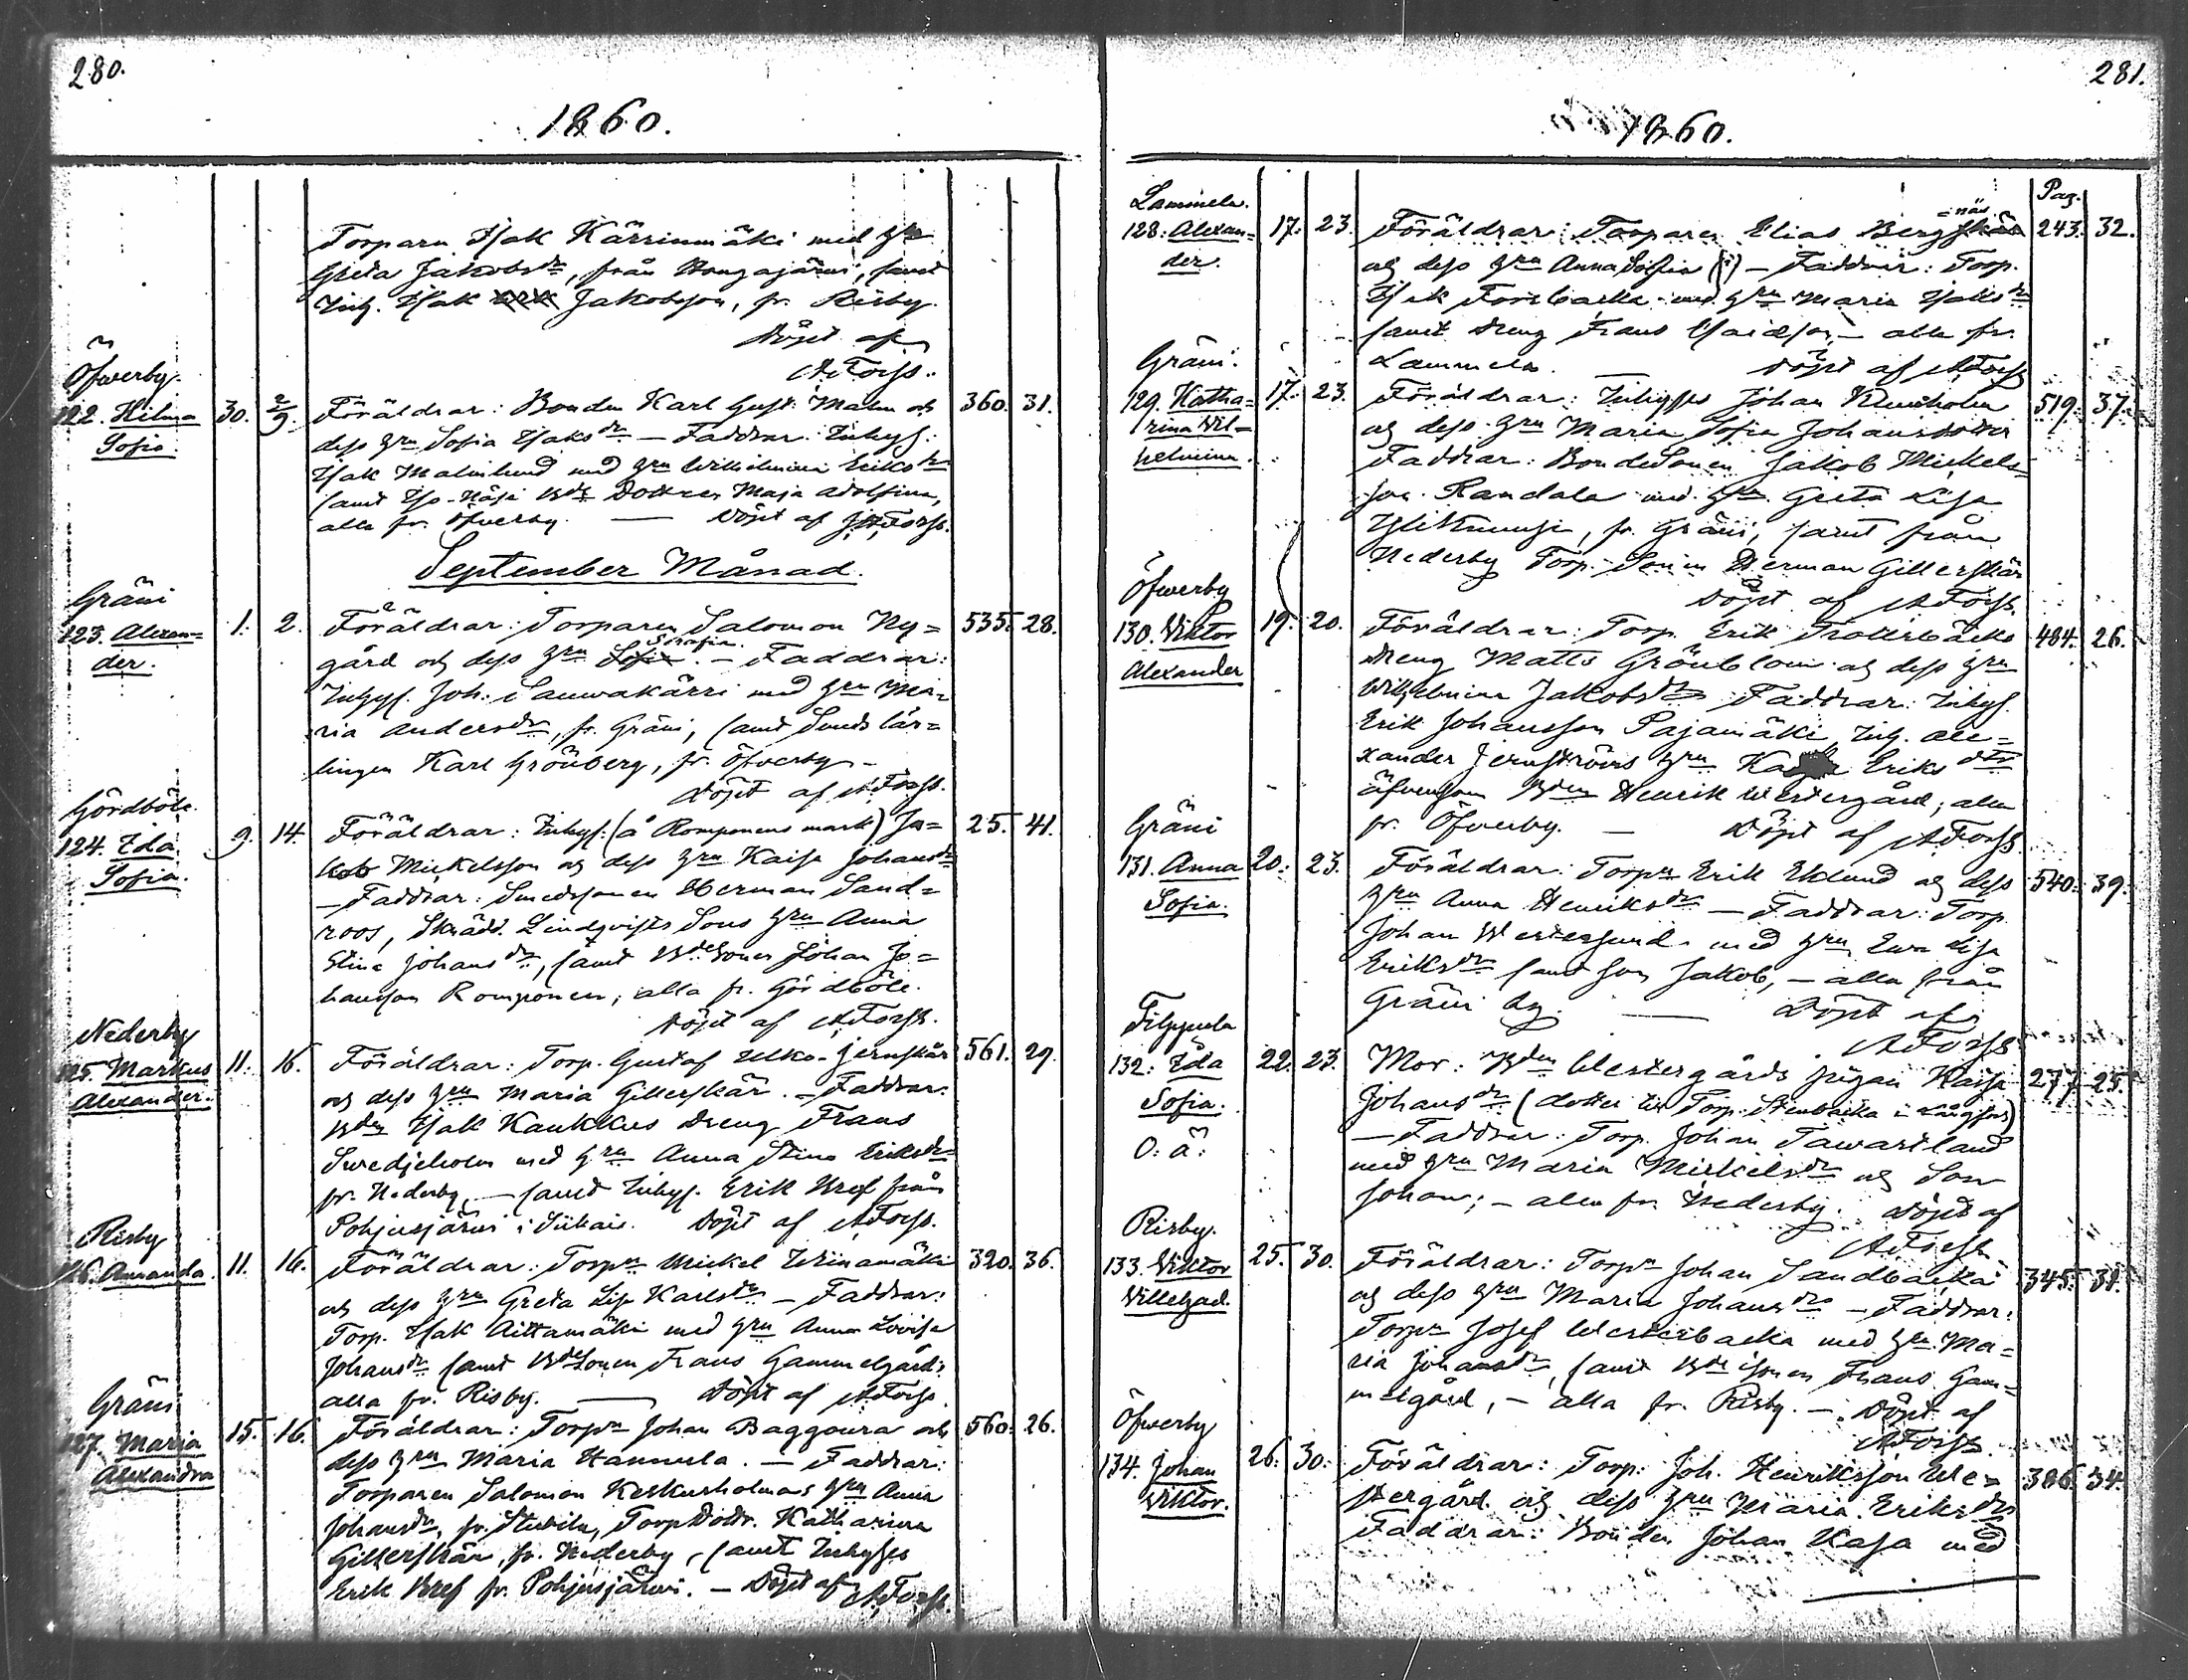 280.
1860.
Torparn Isak Kärrinmäki med hru
Greta Jakobsdr, från Honгajärvi, samt
Inh. Isak Jakobsson, fr. Risby.
Döpt af
AForss.
Öfverby.
122. Hilma Sofia. 30. 2/9. Föräldrar: Bonden Karl Gust. Malm och 360. 31.
dess hru Sofia Isaksdr — Faddrar: Inhys.
Isak Malmlund med hru Wilhelmina Eriksdr
samt Bds Dotter Maja Adolfina,
alla fr. Öfverby. — Döpt af AForss.
September Månad.
Gräni
123. Alexander. 1. 2. Föräldrar: Torparen Salomon Ny= 535. 28.
gård och dess hru Serafia. — Faddrar:
Inhys. Joh. Sauvakärri med hru Ma-
ria Andersdr, fr. Gräni, samt Smeds lär=
lingen Karl Grönberg, fr. Öfverby —
Döpt af AForss.
Gördböle.
124. Ida Sofia. 9. 14. Föräldrar: Inhys. (å Romponens mark) Ja= 25. 41.
kob Mickelsson og dess hru Kaisa Johansdr
— Faddrar: Smedssonen Herman Sand=
roos, Skrädd. Lindqvists Sons hru Anna
Stina Johansdr, samt Bdesonen Johan Jo=
hansson Romponen, alla fr. Gördböle.
Döpt af AForss.
Nederby
125. Markus Alexander. 11. 16. Föräldrar: Torp. Gustaf Jernskär 561. 29.
och dess hru Maria Gillerskär. — Faddrar:
Bden Isak Kaukkus Dreng Frans
Swedjeholm med hru Anna Stina Eriksdr
fr. Nederby, — samt Inhys. Erik Bref från
Pohjusjärvi i Siikais. Döpt af AForss.
Risby
126. Amanda. 11. 16. Föräldrar: Torpn Mickel Wiinamäki 320. 36.
och dess hru Greta Lis Karlsdr — Faddrar:
Torp. Isak Aittamäki med hru Anna Lovisa
Johansdr samt Bdesonen Frans Gammelgård:
alla fr. Risby. — Döpt af AForss.
Gräni
127. Maria Alexandra 15. 16. Föräldrar: Torpn Johan Baggoura och 560. 26.
dess hru Maria Hannula. — Faddrar:
Torparen Salomon Keskusholmas hru Anna
Johansdr, fr. Storbila, TorpDottr. Katharina
Gillerskär, fr. Nederby, samt Inhyses
Erik Bref fr. Pohjusjärvi. — Döpt af AForss.
281.
1860.
Pag.
Lammela.
128. Alexander. 17. 23. Föräldrar: Torparen Elias Bergnäs 243. 32.
og dess hru Anna Sofia — Faddrar: Torp.
Isak Forsbacka med hru Maria Isaksdr
samt Dreng Frans — alla fr.
Lammela. Döpt af AForss
Gräni.
129. Katharina Wilhelmina. 17. 23. Föräldrar: Inhyses Johan Klemiholm 519. 37.
og dess hru Maria Sofia Johansdotter
Faddrar: BondeSonen Jakob Mickels-
son Randala med hru Greta Lisa
fr. Gräni, samt från
Nederby Torp. Sonen Herman Gillerskär
Döpt af AForss.
Öfverby
130. Viktor Alexander 19. 20. Föräldrar: Torp. Erik Trotterbäcks 484. 26.
Dreng Matts Grönblom og dess hru
Wilhelmina Jakobsdr Faddrar: Inhys.
Erik Johansson Pajamäki, Inh. Ale=
xander Jernströms hru Kaisa Eriksdtr
äfvensom Bden Henrik Westergård; alla
fr. Öfverby. — Döpt af AForss.
Gräni
131. Anna Sofia. 20. 23. Föräldrar: Torpn Erik Eklund og dess 540. 39.
hru Anna Henriksdr — Faddrar: Torp.
Johan Westersund med hru Eva Lisa
Eriksdr samt son Jakob, — alla från
Gräni by. — Döpt af
AForss
Filppula
132. Ida Sofia. O. ä: 22. 23. Mor: Bden Westergårds pigan Kaisa 277. 25.
Johansdr (dotter till Torp. Stenbacka i Långfors)
— Faddrar: Torp. Johan Tawastland
med hru Maria Mickelsdr og Son
Johan; — alla fr. Nederby. Döpt af
AForss
Risby.
133. Viktor Villehad. 25. 30. Föräldrar: Torpn Johan Sandbacka 345. 38.
og dess hru Maria Johansdr — Faddrar:
Torpn Josef Westerbacka med hru Ma=
ria Johansdr, samt Bdesonen Frans Gam=
melgård, — alla fr. Risby. — Döpt af
AForss
Öfverby
134. Johan Viktor. 26. 30. Föräldrar: Torp. Joh. Henriksson We= 386. 34.
stergård og dess hru Maria Eriksdr
Faddrar: Bonden Johan Kasa med